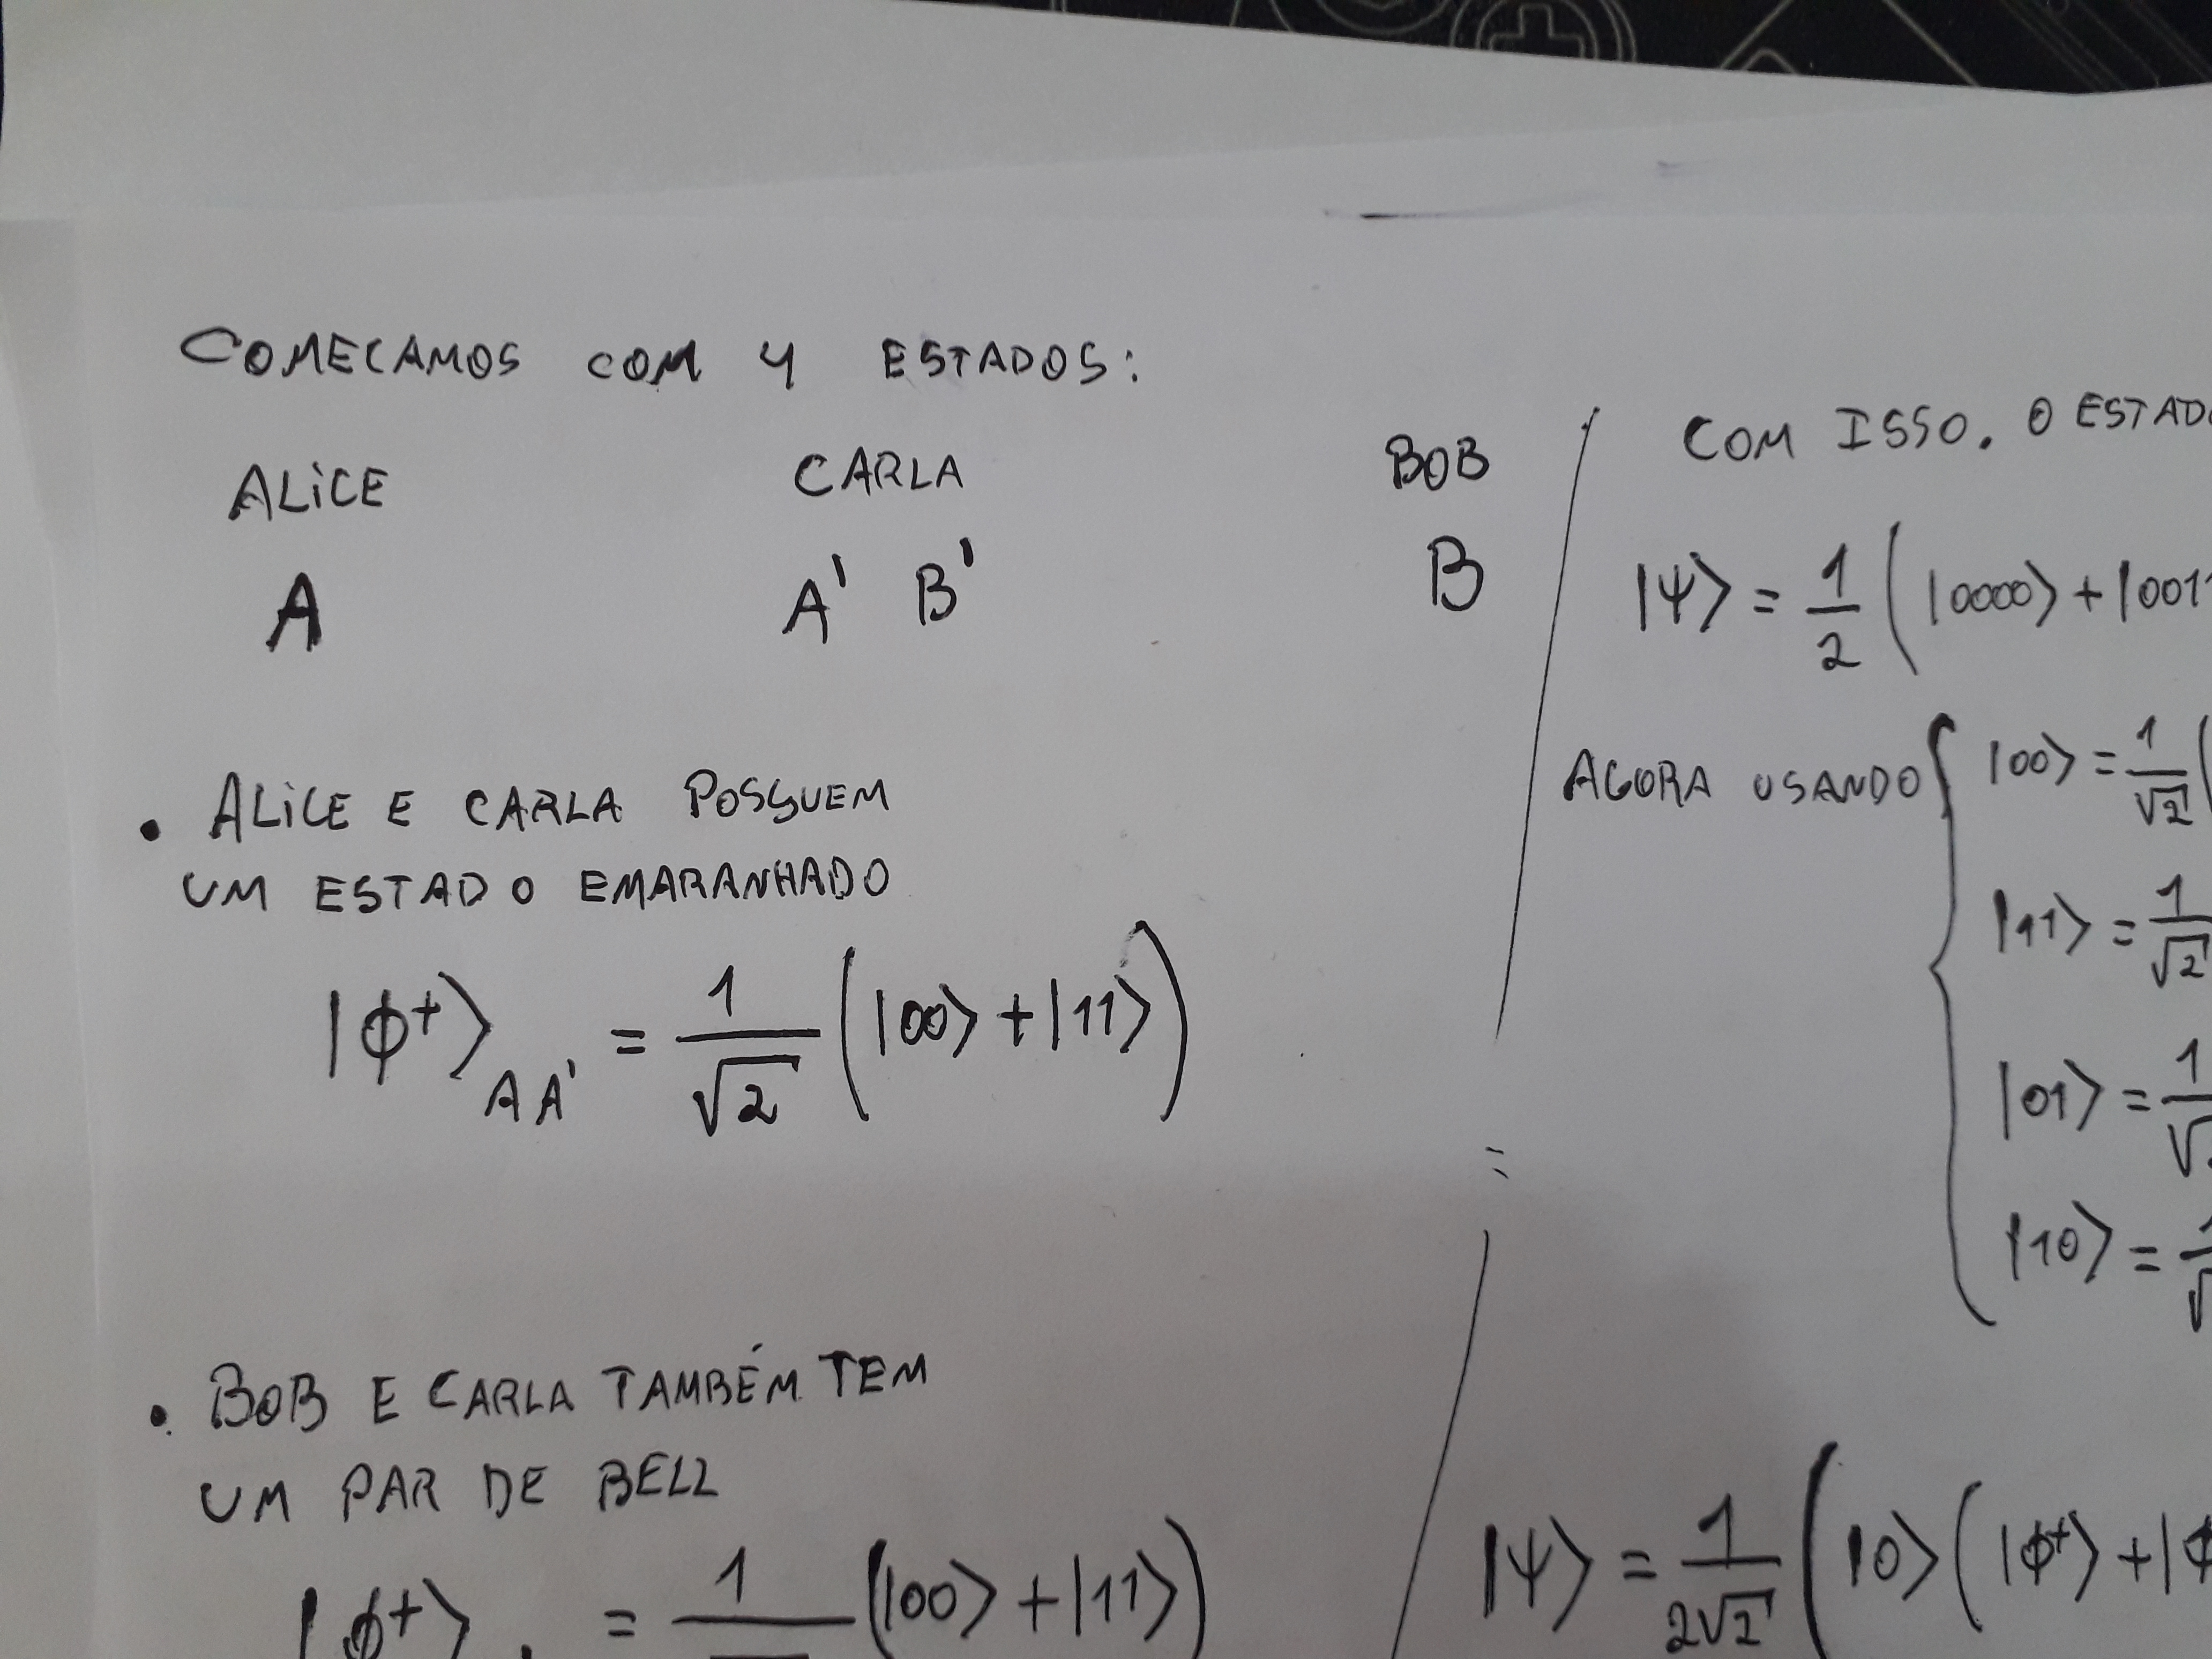 COMEÇAMOS COM 4 ESTADOS:
ALICE CARLA BOB
A A' B' B
• ALICE E CARLA POSSUEM
UM ESTADO EMARANHADO
|φ+⟩AA' = 1/√2 (|00⟩ + |11⟩)
• BOB E CARLA TAMBÉM TEM
UM PAR DE BELL
|φ+⟩ = 1 (|00⟩ + |11⟩)
COM ISSO, O ESTAD
|ψ⟩ = 1/2 (|0000⟩ + |001
AGORA USANDO { |00⟩ = 1/√2 (
|11⟩ = 1/√2
|01⟩ = 1/√
|10⟩ =
|ψ⟩ = 1/2√2 (|0⟩ (|φ+⟩ + |φ